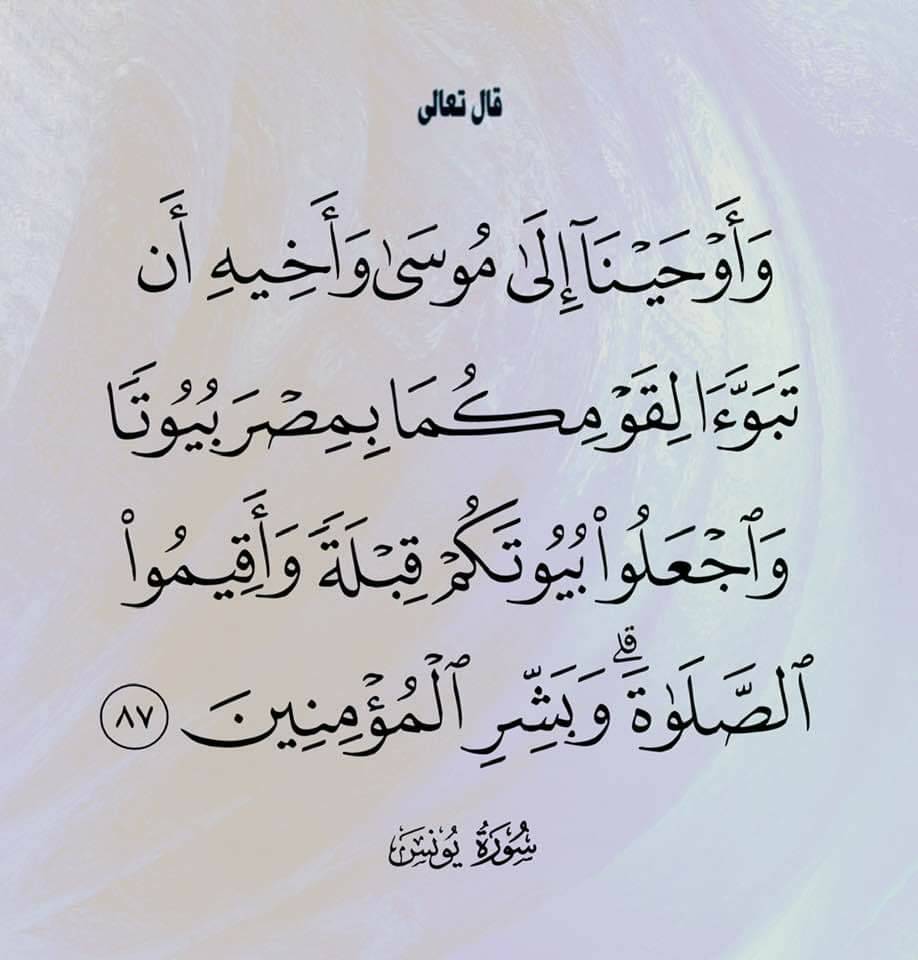 قال تعالى
وَأَوۡحَيۡنَآ إِلَىٰ مُوسَىٰ وَأَخِيهِ أَن
تَبَوَّءَا لِقَوۡمِكُمَا بِمِصۡرَ بُيُوتٗا
وَٱجۡعَلُواْ بُيُوتَكُمۡ قِبۡلَةٗ وَأَقِيمُواْ
ٱلصَّلَوٰةَۗ وَبَشِّرِ ٱلۡمُؤۡمِنِينَ ٨٧
سُورَةُ يُونُسَ